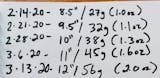 2-14-20- 8.5"/29g (1.0oz)
2-21-20- 9.5"/32g (1.1oz)
2-28-20- 10"/38g (1.3oz)
3-6-20- 11"/45g (1.6oz)
3-13-20- 12"/56g (2.0oz)